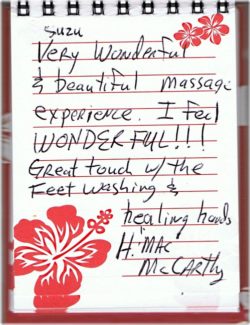 Suzu
Very Wonderful
& beautiful massage
experience. I feel
WONDERFUL!!!
Great touch w/ the
Feet washing &
healing hands
H. Mac
McCarthy